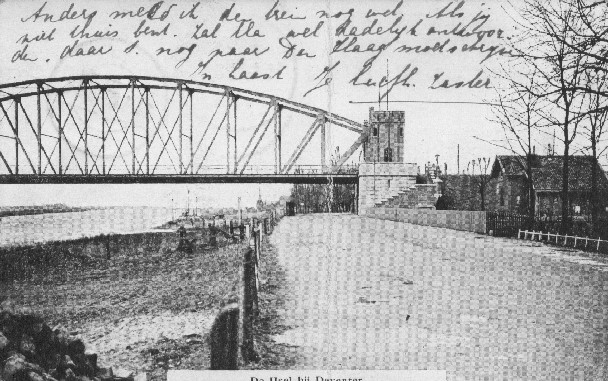 Anders meld ik de brei nog wel. Als jij
niet thuis bent. Zal tla wel dadelijk antwoor-
den, daar s. nog naar Den Haag moet schrijven
'n haast Je liefh. Zuster
De IJsel bij Deventer